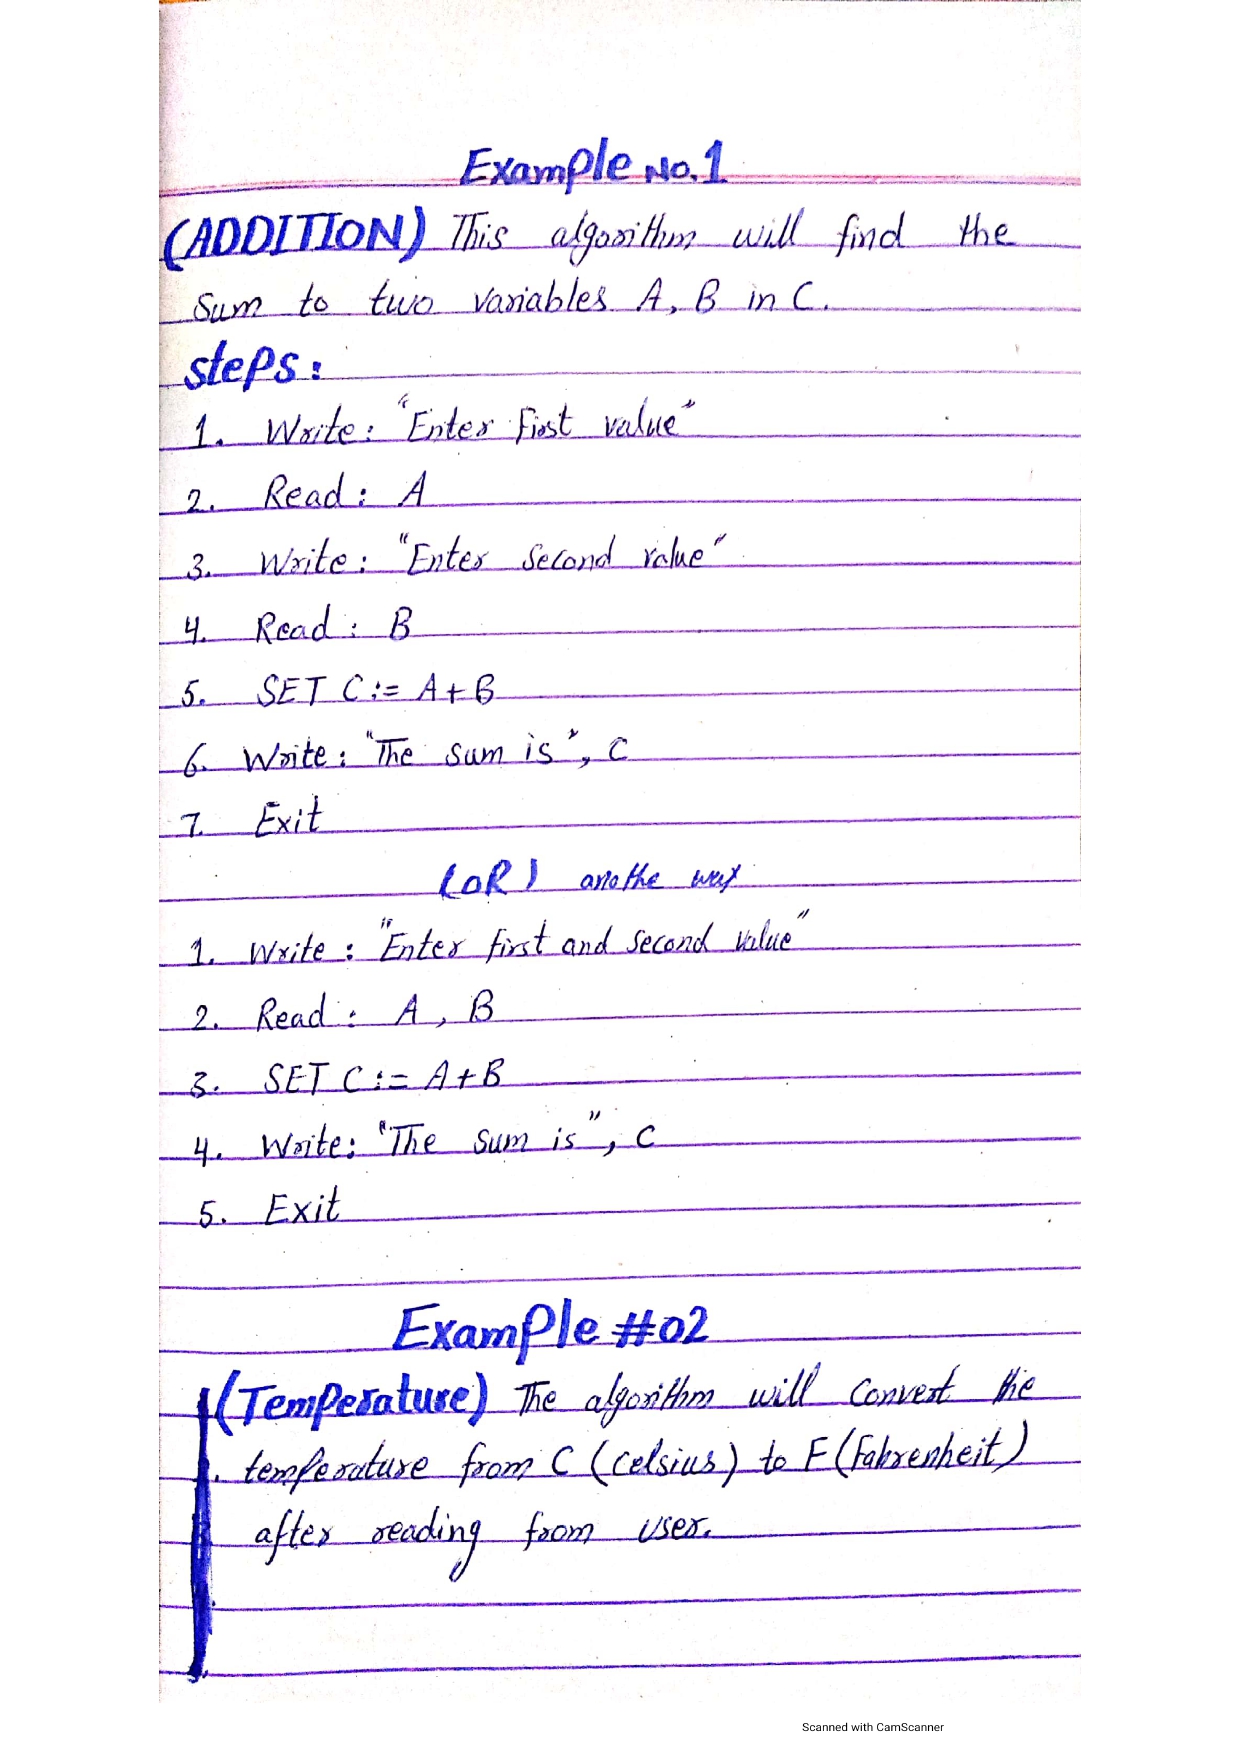 Example No.1
(ADDITION) This algorithm will find the
Sum to two variables A, B in C.
steps:
1. Write: "Enter First value"
2. Read: A
3. Write: "Enter Second value"
4. Read: B
5. SET C:= A+B
6. Write: "The Sum is", C
7. Exit
(OR) anothe way
1. Write: "Enter first and second value"
2. Read: A, B
3. SET C:= A+B
4. Write: "The sum is", C
5. Exit
Example #02
(Temperature) The algorithm will convert the
temperature from C (Celsius) to F (Fahrenheit)
after reading from user.
Scanned with CamScanner